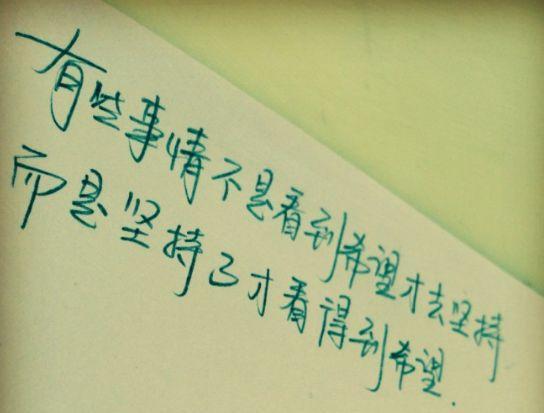 有些事情不是看到希望才去坚持
而是坚持了才看得到希望.